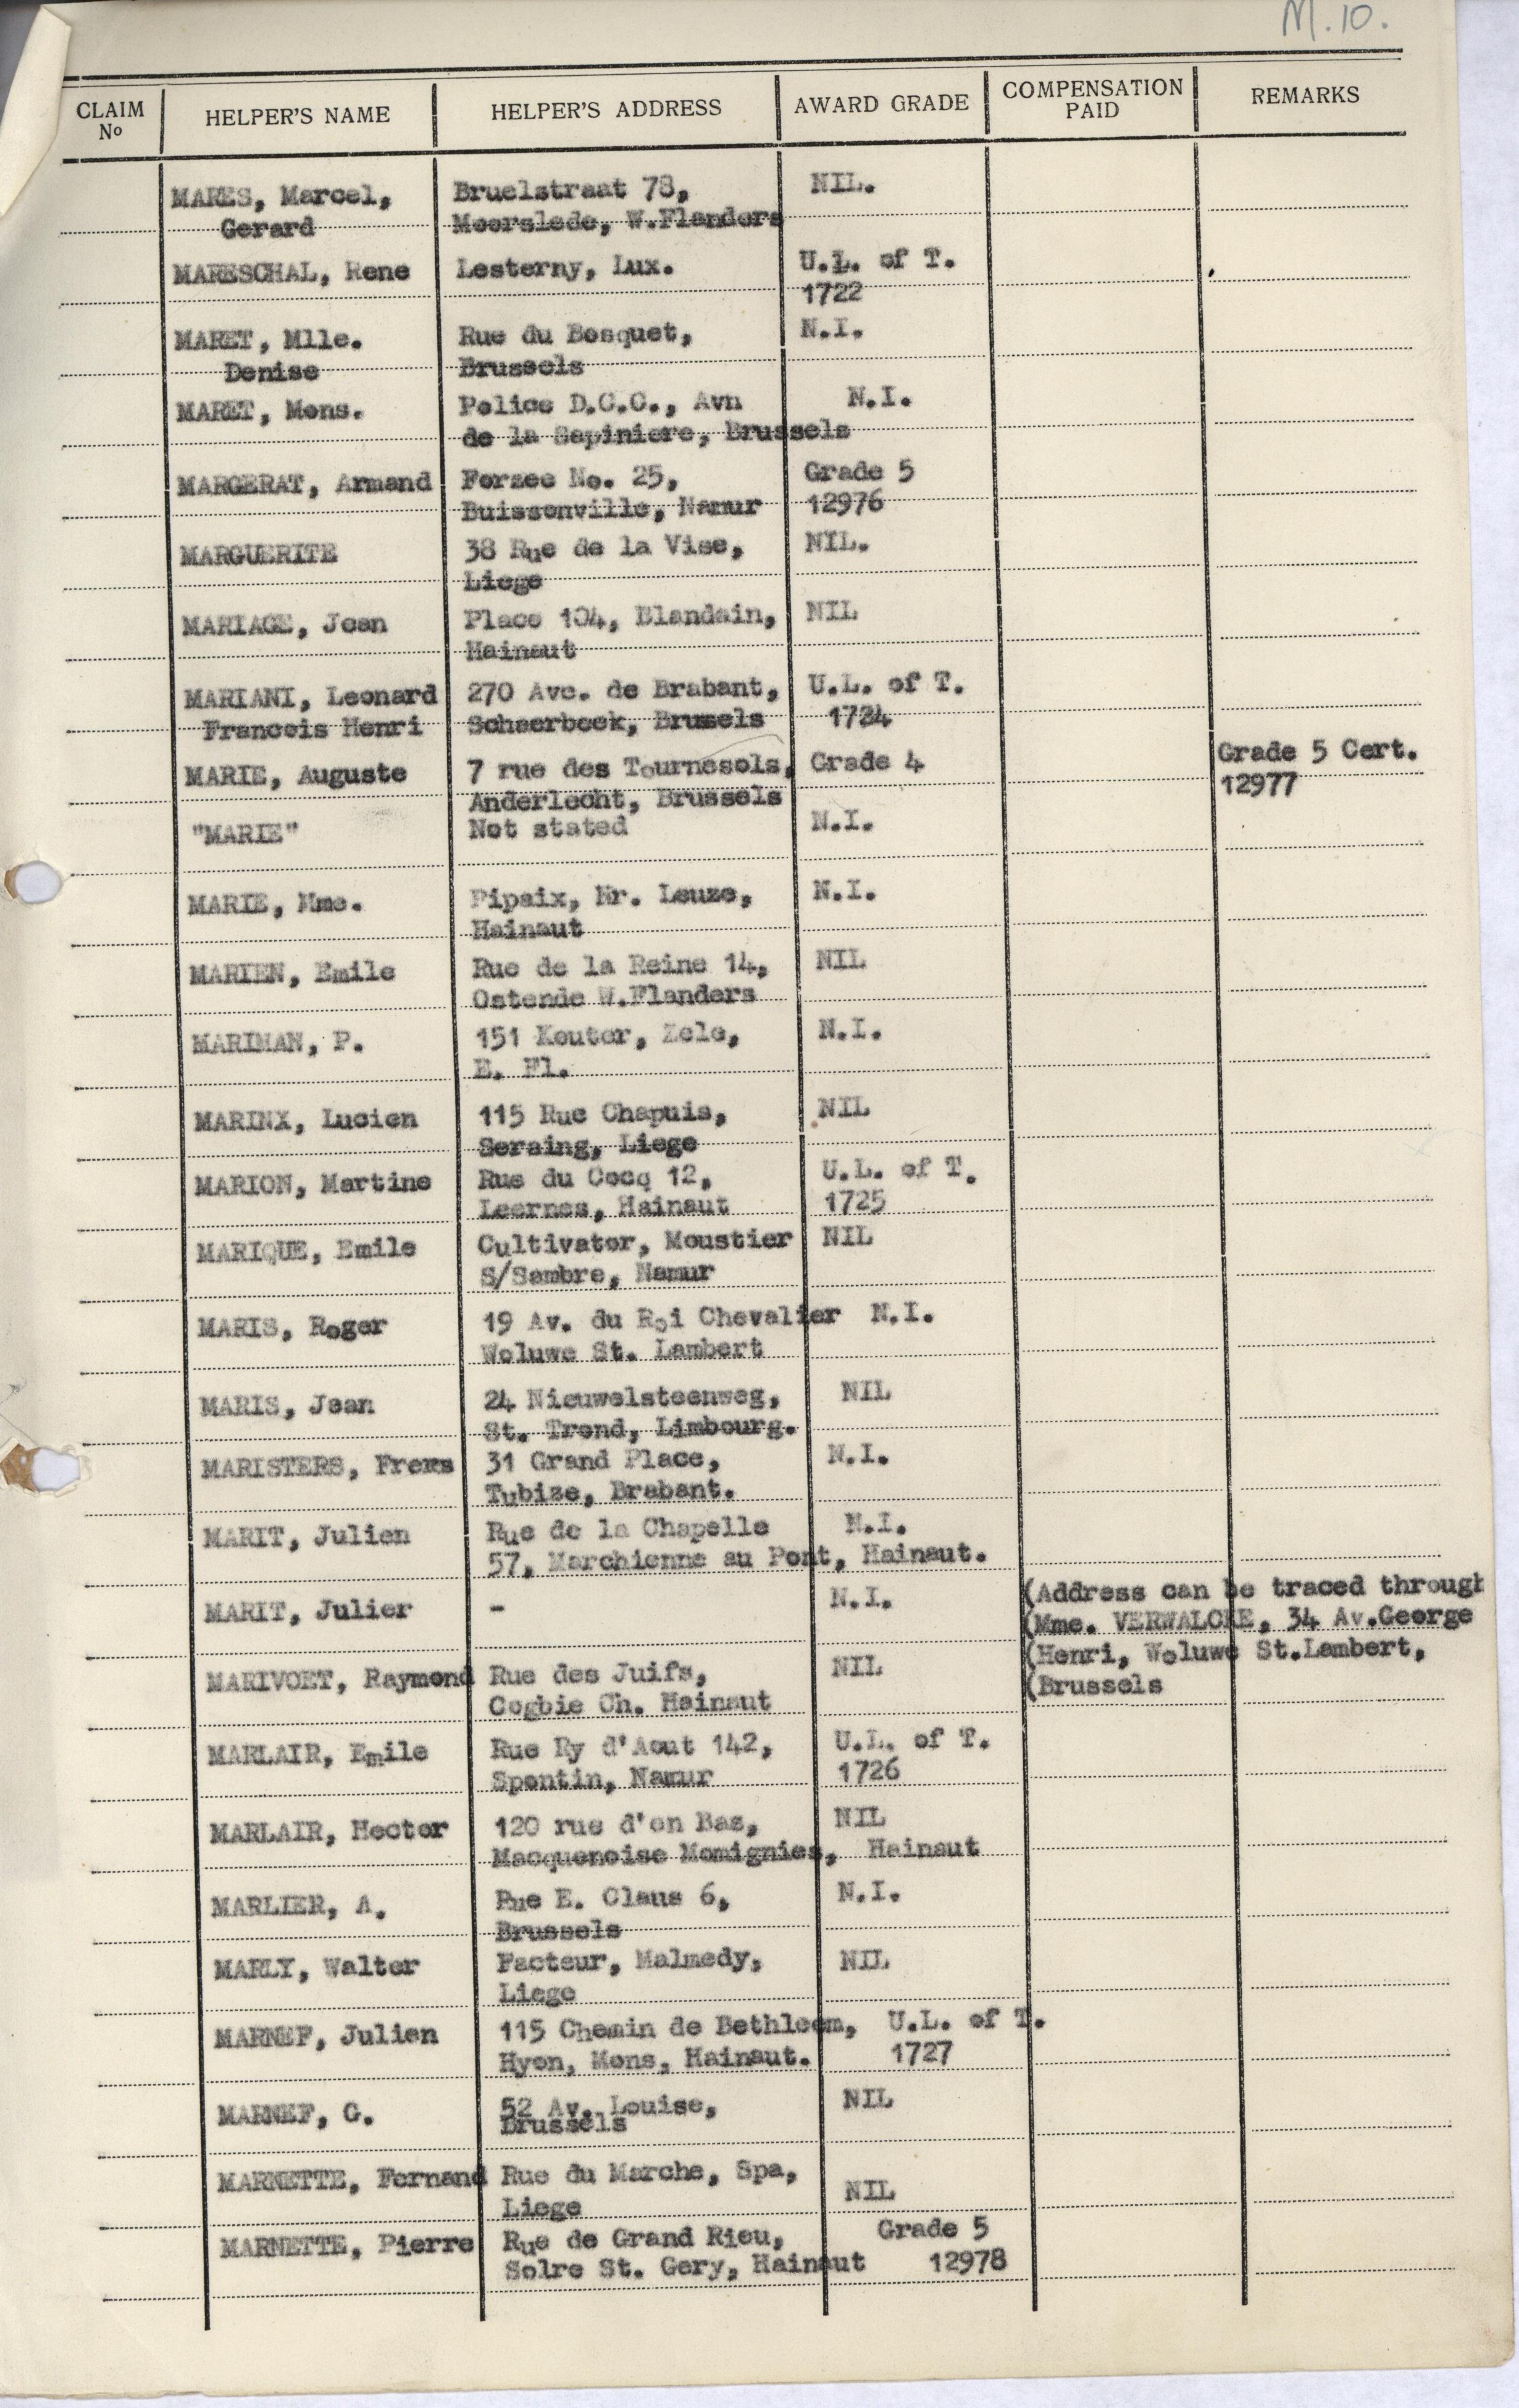 M.10.
CLAIM No HELPER'S NAME HELPER'S ADDRESS AWARD GRADE COMPENSATION PAID REMARKS
MARES, Marcel, Bruelstraat 78, NIL.
Gerard Moorslede, W.Flanders
MARESCHAL, Rene Lesterny, Lux. U.L. of T.
1722
MARET, Mlle. Rue du Bosquet, N.I.
Denise Brussels
MARET, Mons. Police D.C.C., Avn N.I.
de la Sapiniere, Brussels
MARGERAT, Armand Forzee No. 25, Grade 5
Buissonville, Namur 12976
MARGUERITE 38 Rue de la Vise, NIL.
Liege
MARIAGE, Jean Place 104, Blandain, NIL
Hainaut
MARIANI, Leonard 270 Ave. de Brabant, U.L. of T.
Francois Henri Schaerbeek, Brussels 1724
MARIE, Auguste 7 rue des Tournesols, Grade 4 Grade 5 Cert.
Anderlecht, Brussels 12977
"MARIE" Not stated N.I.
MARIE, Mme. Pipaix, Nr. Leuze, N.I.
Hainaut
MARIEN, Emile Rue de la Reine 14, NIL
Ostende W.Flanders
MARIMAN, P. 151 Kouter, Zele, N.I.
E. Fl.
MARINX, Lucien 115 Rue Chapuis, NIL
Seraing, Liege
MARION, Martine Rue du Cocq 12, U.L. of T.
Leernes, Hainaut 1725
MARIQUE, Emile Cultivator, Moustier NIL
S/Sambre, Namur
MARIS, Roger 19 Av. du Roi Chevalier N.I.
Woluwe St. Lambert
MARIS, Jean 24 Nieuwelsteenweg, NIL
St. Trond, Limbourg.
MARISTERS, Frers 31 Grand Place, N.I.
Tubize, Brabant.
MARIT, Julien Rue de la Chapelle N.I.
57, Marchienne au Pont, Hainaut.
MARIT, Julier - N.I. (Address can be traced through
(Mme. VERWALCKE, 34 Av.George
(Henri, Woluwe St.Lambert,
MARIVOET, Raymond Rue des Juifs, NIL (Brussels
Cogbie Ch. Hainaut
MARLAIR, Emile Rue Ry d'Aout 142, U.L. of T.
Spontin, Namur 1726
MARLAIR, Hector 120 rue d'en Bas, NIL
Macquenoise Momignies, Hainaut
MARLIER, A. Rue E. Claus 6, N.I.
Brussels
MARLY, Walter Facteur, Malmedy, NIL
Liege
MARNEF, Julien 115 Chemin de Bethleem, U.L. of T.
Hyon, Mons, Hainaut. 1727
MARNEF, G. 52 Av. Louise, NIL
Brussels
MARNETTE, Fernand Rue du Marche, Spa, NIL
Liege
MARNETTE, Pierre Rue de Grand Rieu, Grade 5
Solre St. Gery, Hainaut 12978